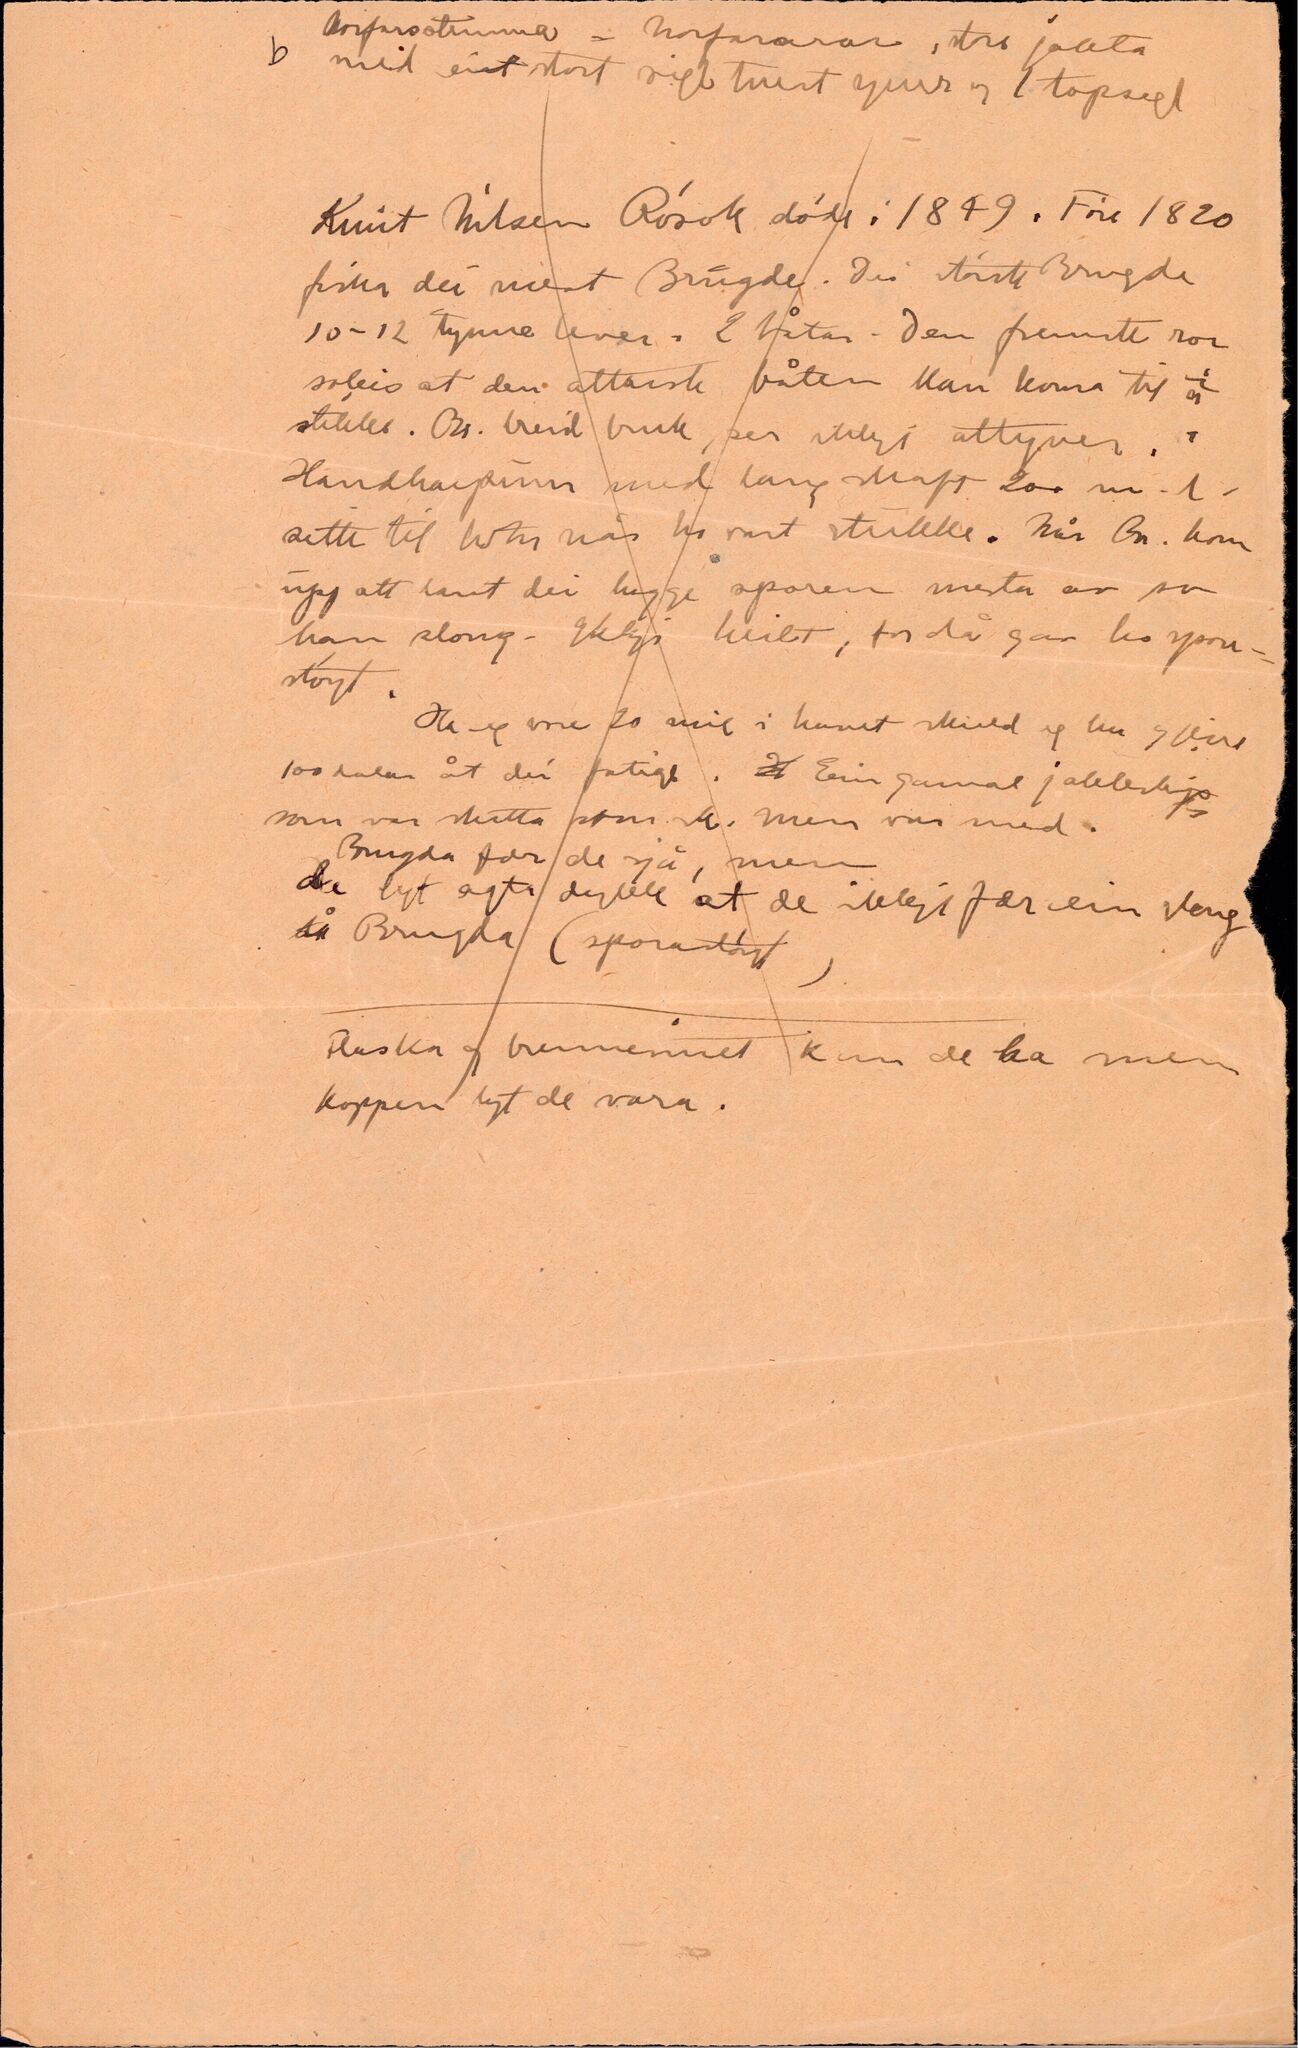 b Norfarsstemna = Norfararar, store jakta
med eit stort sigl tvert yver og 1 topsegl
Knut Nilsen Rósok døde i 1849. Före 1820
fiska dei mest Brugde. Dei störste Brugda
10-12 tynne lever. 2 båtar - Den fremste ror
soleis at den attarste båten kan koma til å
stikke. Br. breid bruk, ser ikkje attyver.
Handharpun med lang skaft 200 m.
sette til når ho vart stukke. Når Br. kom
upp att laut dei hogge sporen mesta av so
han slong - Ikkje heilt, for då gav ho spora-
støyt.
Ha eg vore 20 mil i havet skuld eg ha gjeve
100 dalar åt dei fatige. Ein gamal jakteskip
som var skutta men var med.
Brugda fær de sjå, men
de lyt agta dykk at de ikkje fær ein sleng
tå Brugda (sporastöyt)
Flaska og brennevinet kan de ha men
koppen lyt de vara.